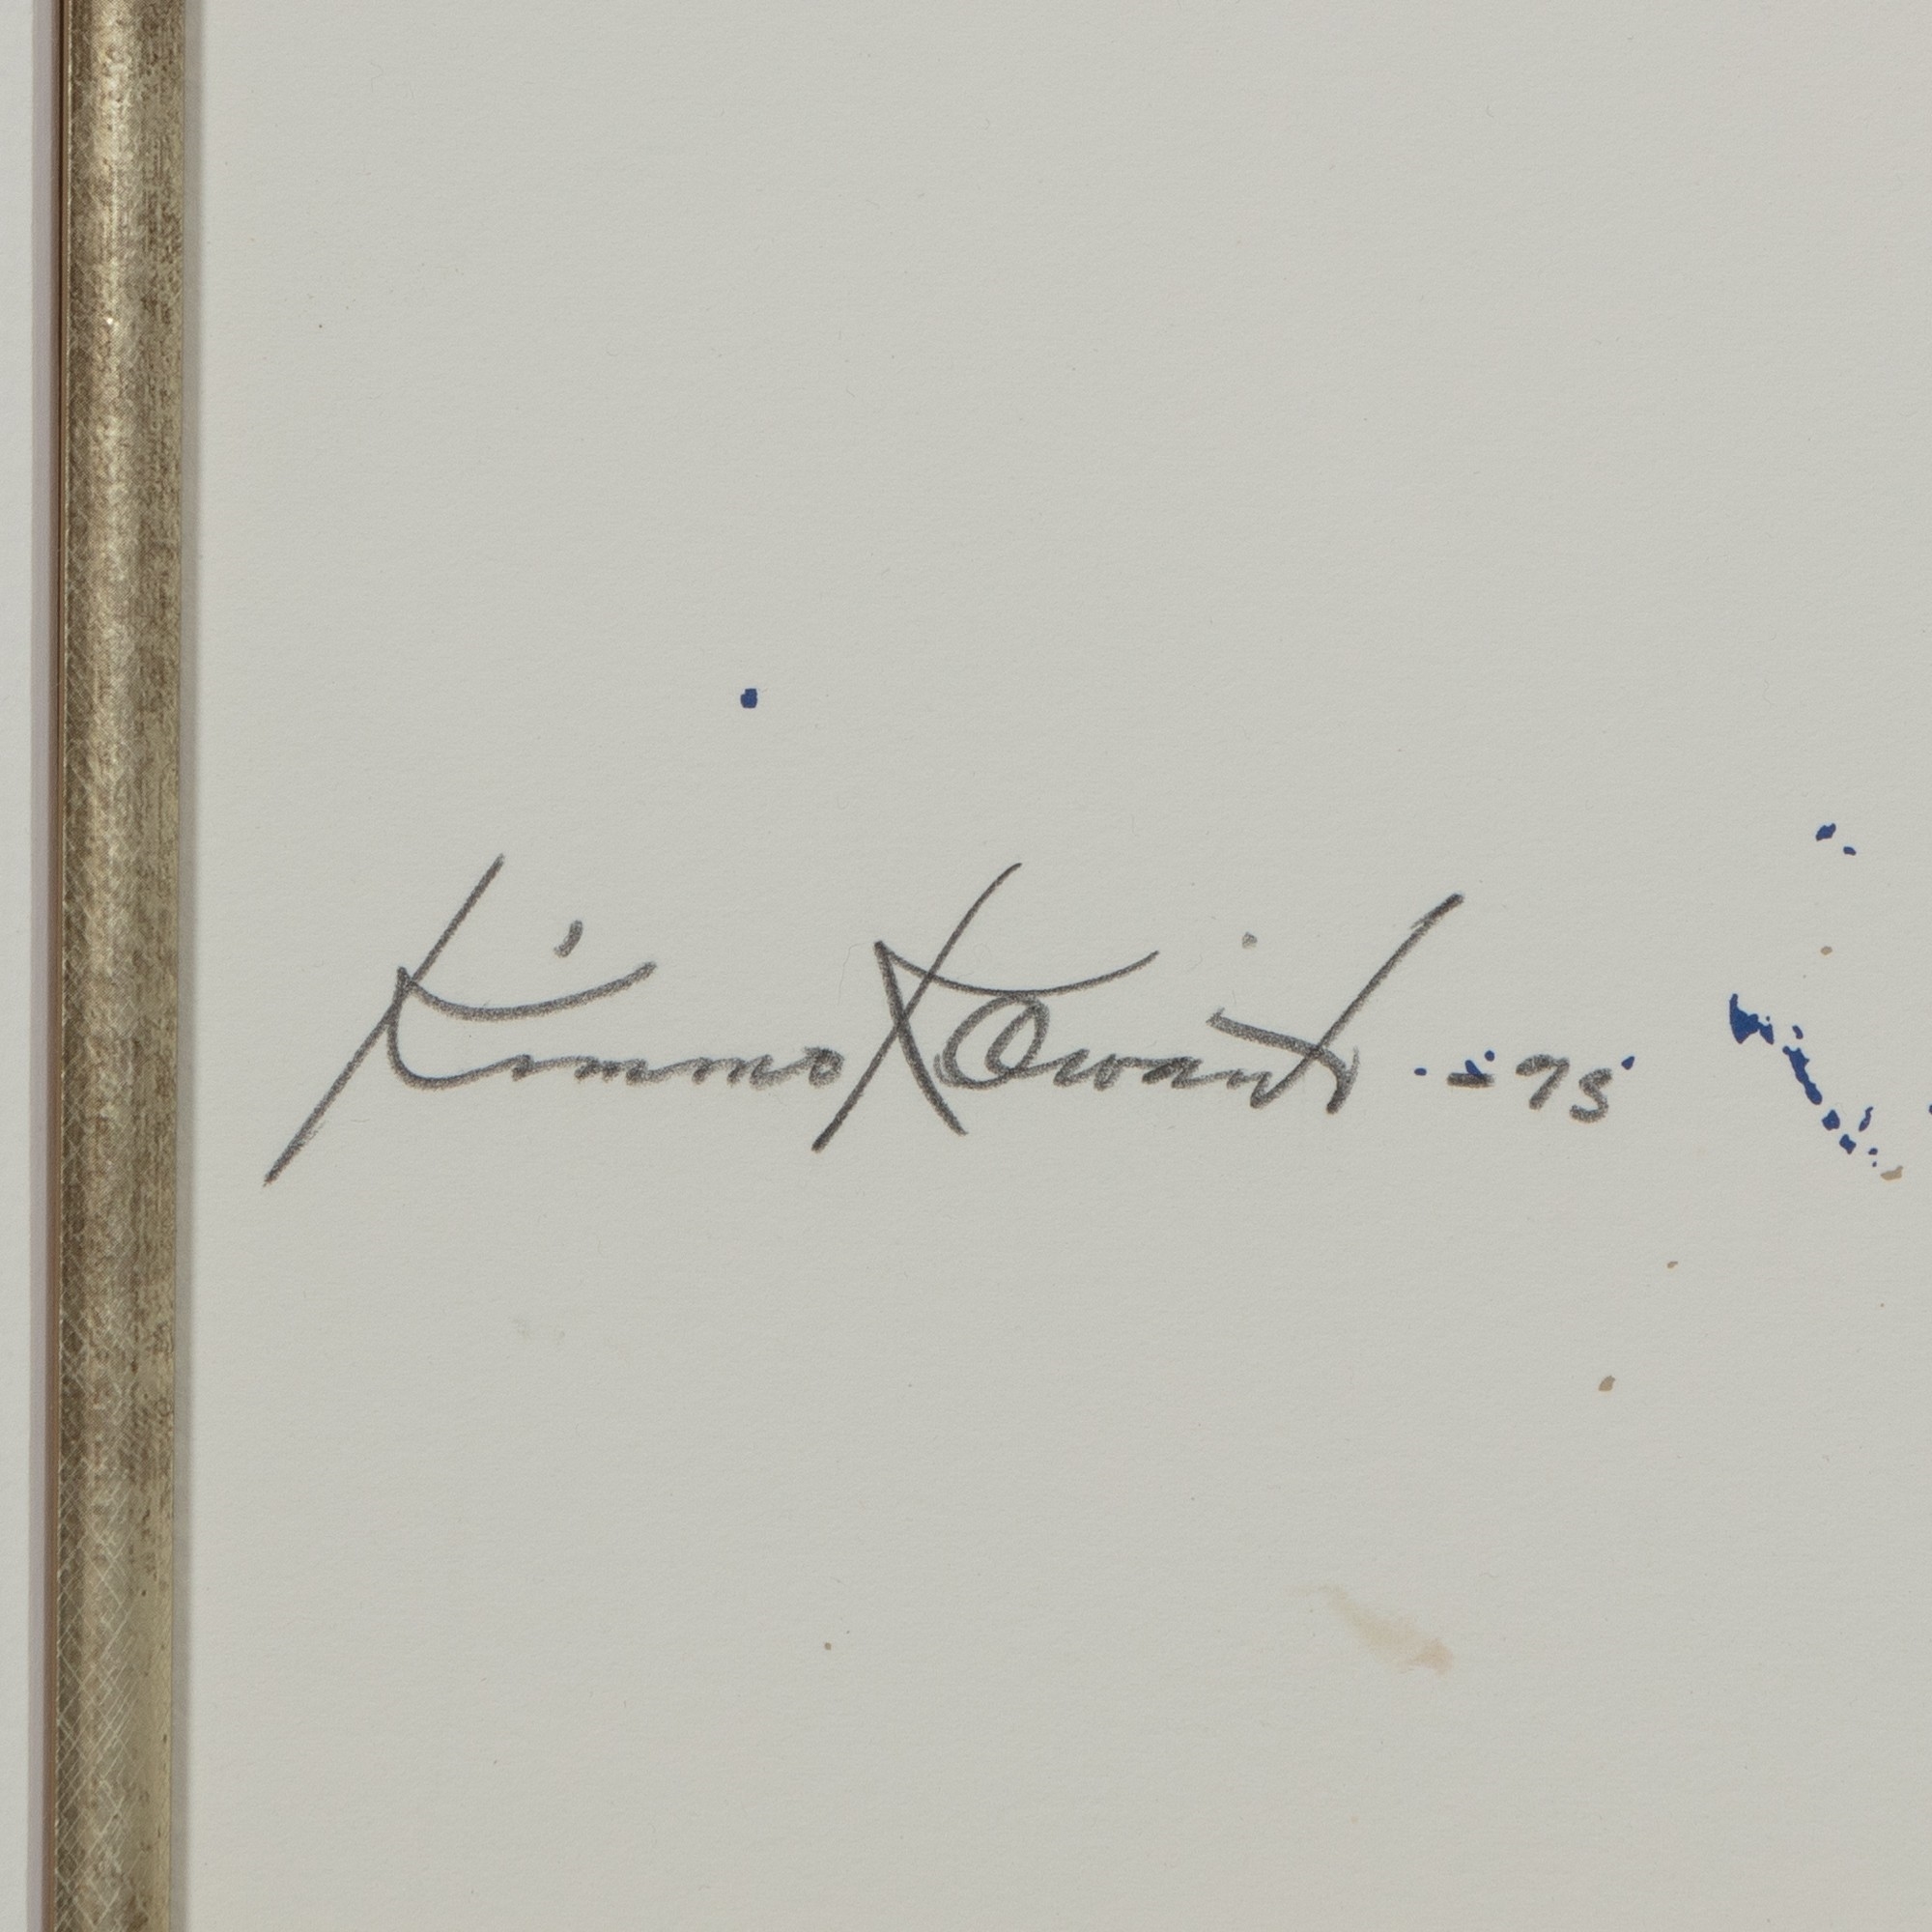 Kimmo Kaivanto -75